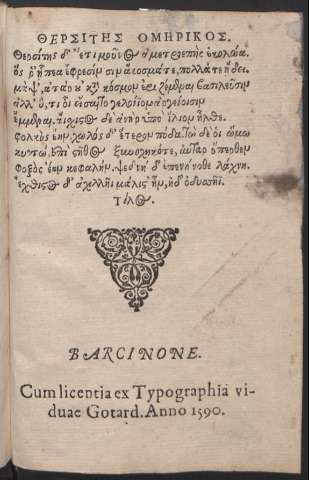 ΘΕΡΣΙΤΗΣ ΟΜΗΡΙΚΟΣ.
Θερσίτης δ' ἔτι μοῦνος ἀμετροεπὴς ἐκολώα.
ὃς ῥ' ἔπεα φρεσὶν ᾗσιν ἄκοσμα τε, πολλά τε ἤδει.
μὰψ, ἀτὰρ οὐ κατὰ κόσμον ἐριζέμεναι βασιλεῦσιν
ἀλλ' ὅ, τι οἱ εἴσαιτο γελοίιον ἀργείοισιν
ἔμμεναι. αἴσχιστος δὲ ἀνὴρ ὑπὸ ἴλιον ἦλθε.
φολκὸς ἔην, χωλὸς δ' ἕτερον πόδα. τὼ δέ οἱ ὤμω
κυρτώ, ἐπὶ στῆθος συνοχωκότε, αὐτὰρ ὕπερθεν
φοξὸς ἔην κεφαλήν. ψεδνὴ δ' ἐπενήνοθε λάχνη.
ἔχθιστος δ' ἀχιλῆι μάλιστ' ἦν, ἠδ' ὀδυσῆι.
ΤΕΛΟΣ.
BARCINONE.
Cum licentia ex Typographia vi-
duae Gotard. Anno 1590.